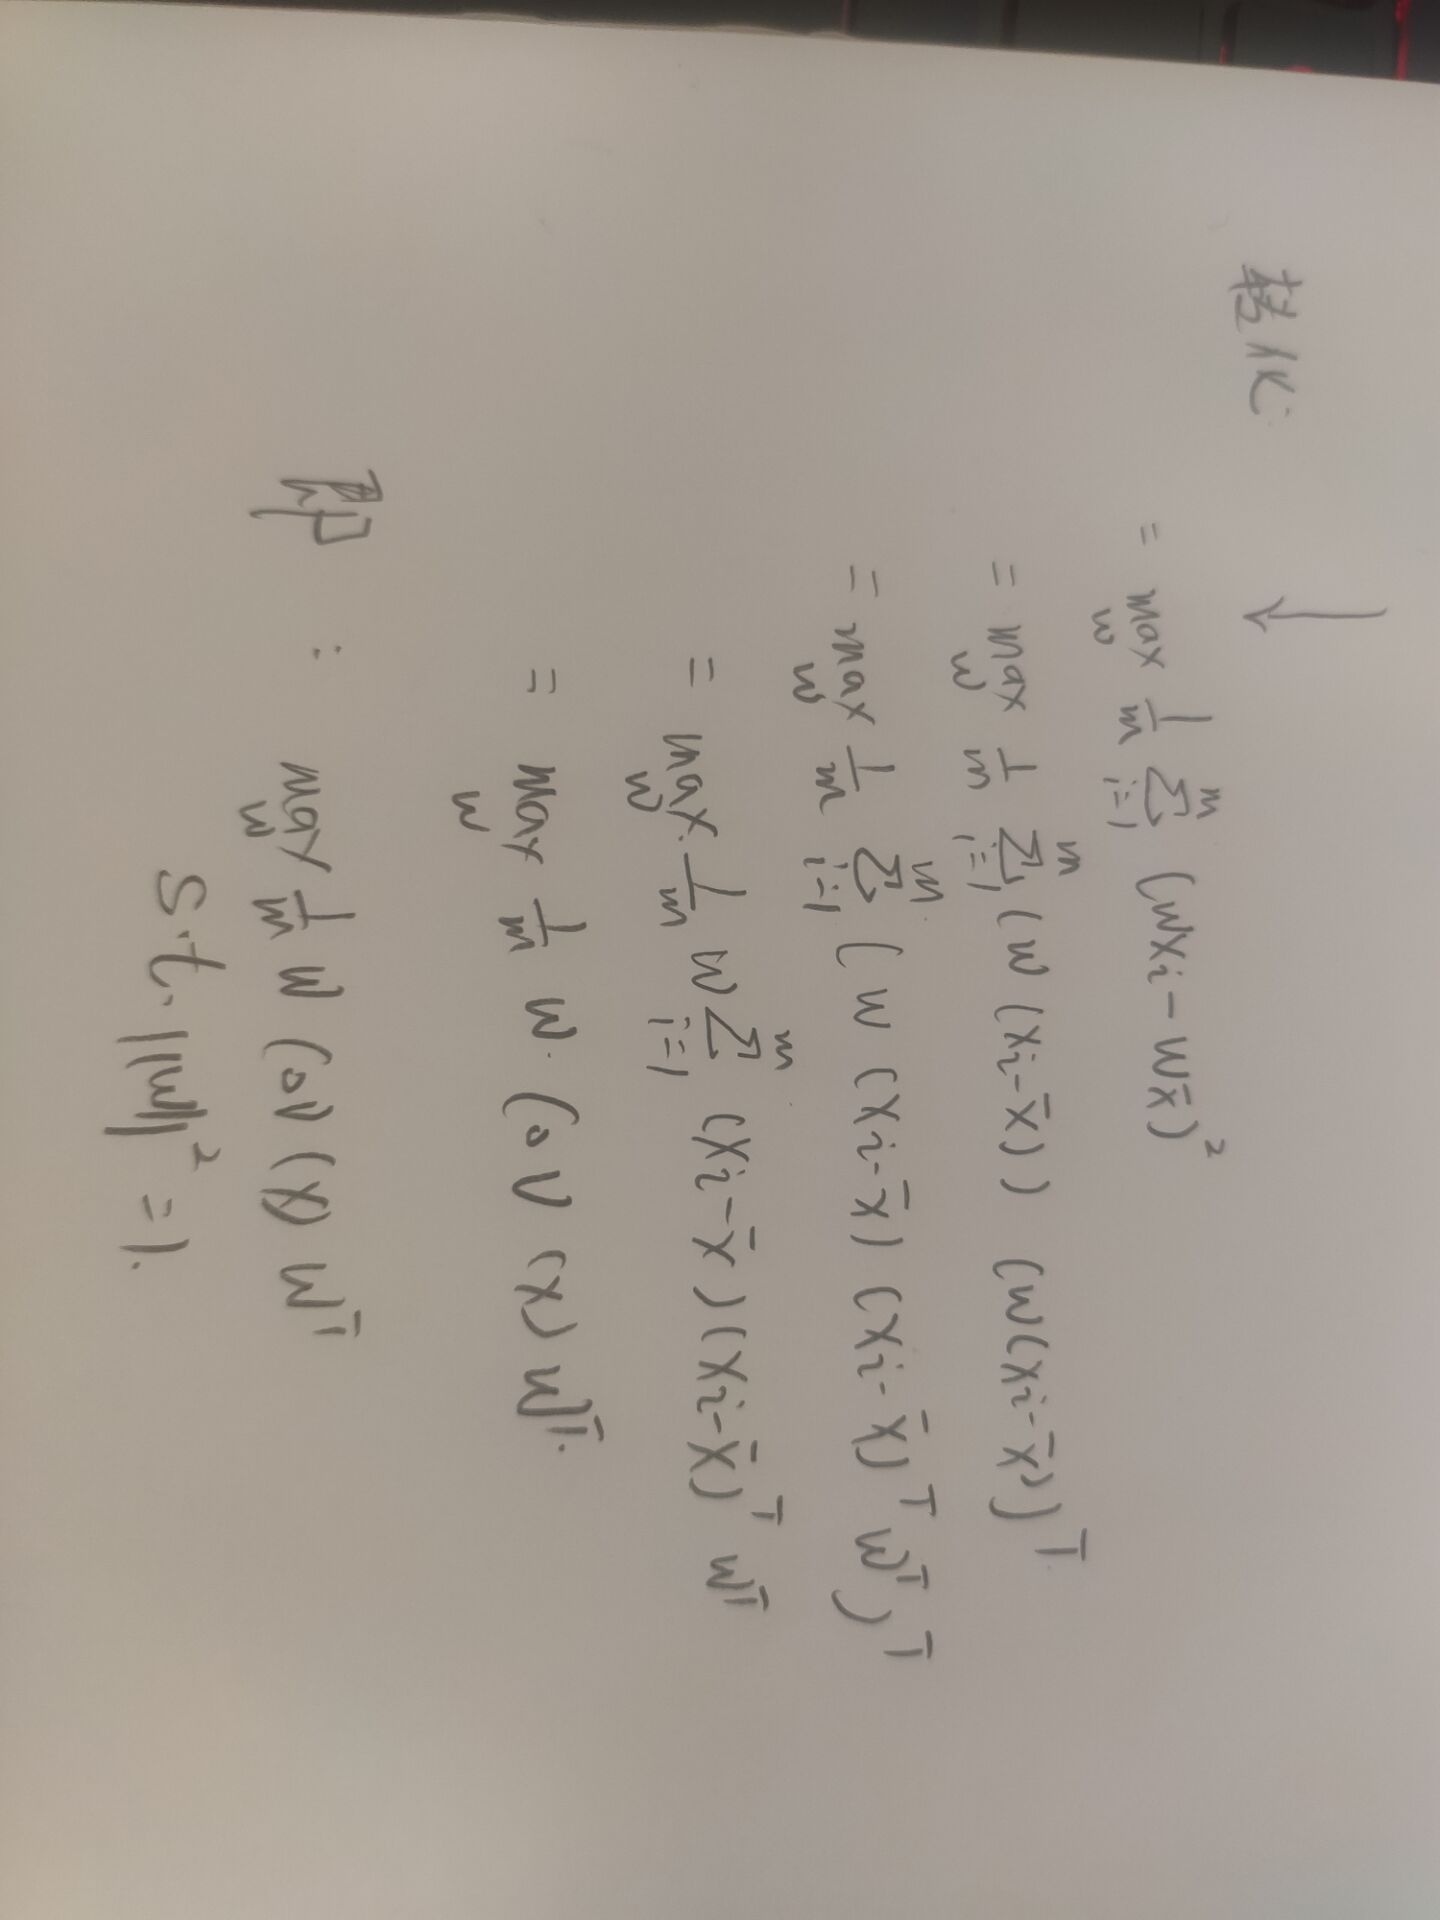 转化:
= max_w 1/m Σ_{i=1}^{m} (wxi - wx̄)²
= max_w 1/m Σ_{i=1}^{m} (w (xi - x̄)) (w(xi - x̄))ᵀ
= max_w 1/m Σ_{i=1}^{m} (w (xi - x̄) (xi - x̄)ᵀ wᵀ)ᵀ
= max_w 1/m w Σ_{i=1}^{m} (xi - x̄)(xi - x̄)ᵀ wᵀ
= max_w 1/m w · Cov (x) wᵀ.
即 : max_w 1/m w Cov (x) wᵀ
s.t. ||w||² = 1.